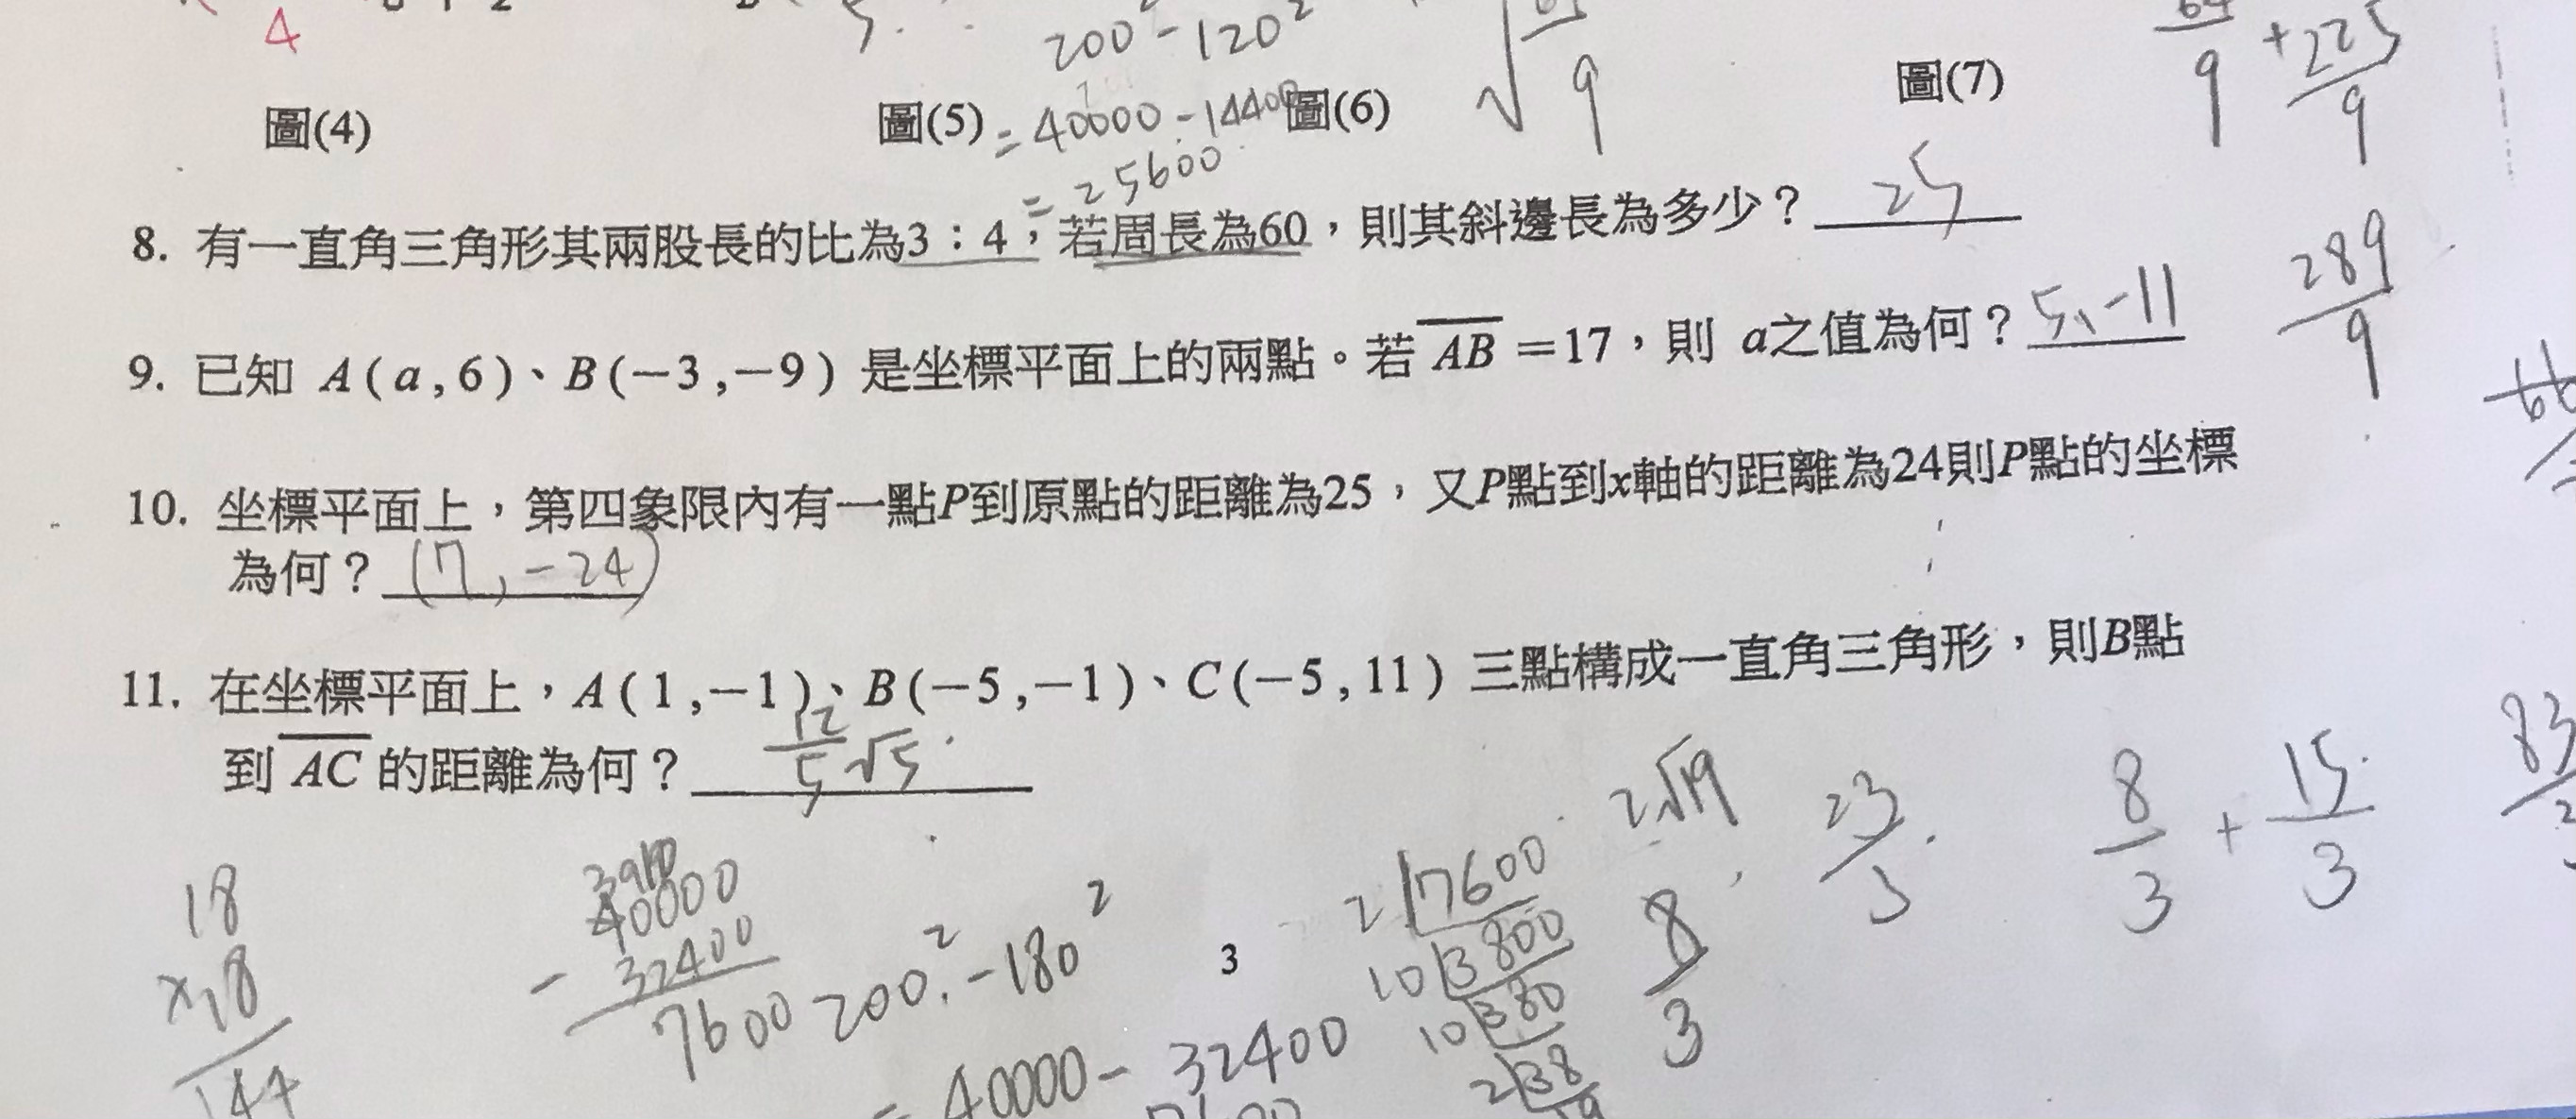 4
200² - 120²
圖(4)
圖(5)
= 40000 - 14400
圖(6)
9
圖(7)
9 + 225/9
= 25600
8. 有一直角三角形其兩股長的比為3：4，若周長為60，則其斜邊長為多少？ 25
289/9
9. 已知 A(a,6)、B(−3,−9) 是坐標平面上的兩點。若 AB =17，則 a之值為何？ 5、-11
10. 坐標平面上，第四象限內有一點P到原點的距離為25，又P點到x軸的距離為24則P點的坐標
為何？ (7, -24)
11. 在坐標平面上，A(1,−1)、B(−5,−1)、C(−5,11) 三點構成一直角三角形，則B點
到 AC 的距離為何？ 12/5 √5
2√19
23/3
8/3 + 15/3
83
18
×18
144
40000
- 32400
7600
200² - 180²
40000 - 32400
3
2 7600
10 3800
10 380
2 38
19
8/3